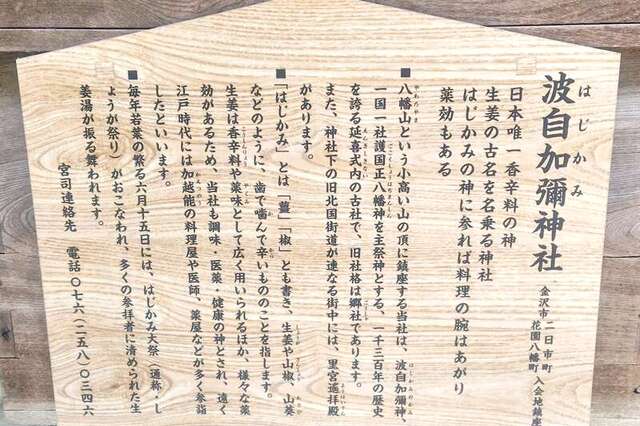 はじかみ
波自加彌神社
金沢市 二日市町
花園八幡町 入会地鎮座
日本唯一香辛料の神
生姜の古名を名乗る神社
はじかみの神に参れば料理の腕はあがり
薬効もある
■八幡山という小高い山の頂に鎮座する当社は、波自加彌神、
一国一社護国正八幡神を主祭神とする、一千三百年の歴史
を誇る延喜式内の古社で、旧社格は郷社であります。
また、神社下の旧北国街道が連なる街中には、里宮遥拝殿
があります。
■「はじかみ」とは「薑」「椒」とも書き、生姜や山椒、山葵
などのように、歯で噛んで辛いもののことを指します。
生姜は香辛料や薬味として広く用いられるほか、様々な薬
効があるため、当社も調味・医薬・健康の神とされ、遠く
江戸時代には加越能の料理屋や医師、薬屋などが多く参詣
したといいます。
■毎年若葉の繁る六月十五日には、はじかみ大祭(通称・し
ょうが祭り)がおこなわれ、多くの参拝者に清められた生
姜湯が振る舞われます。
宮司連絡先 電話〇七六(二五八)〇三四六